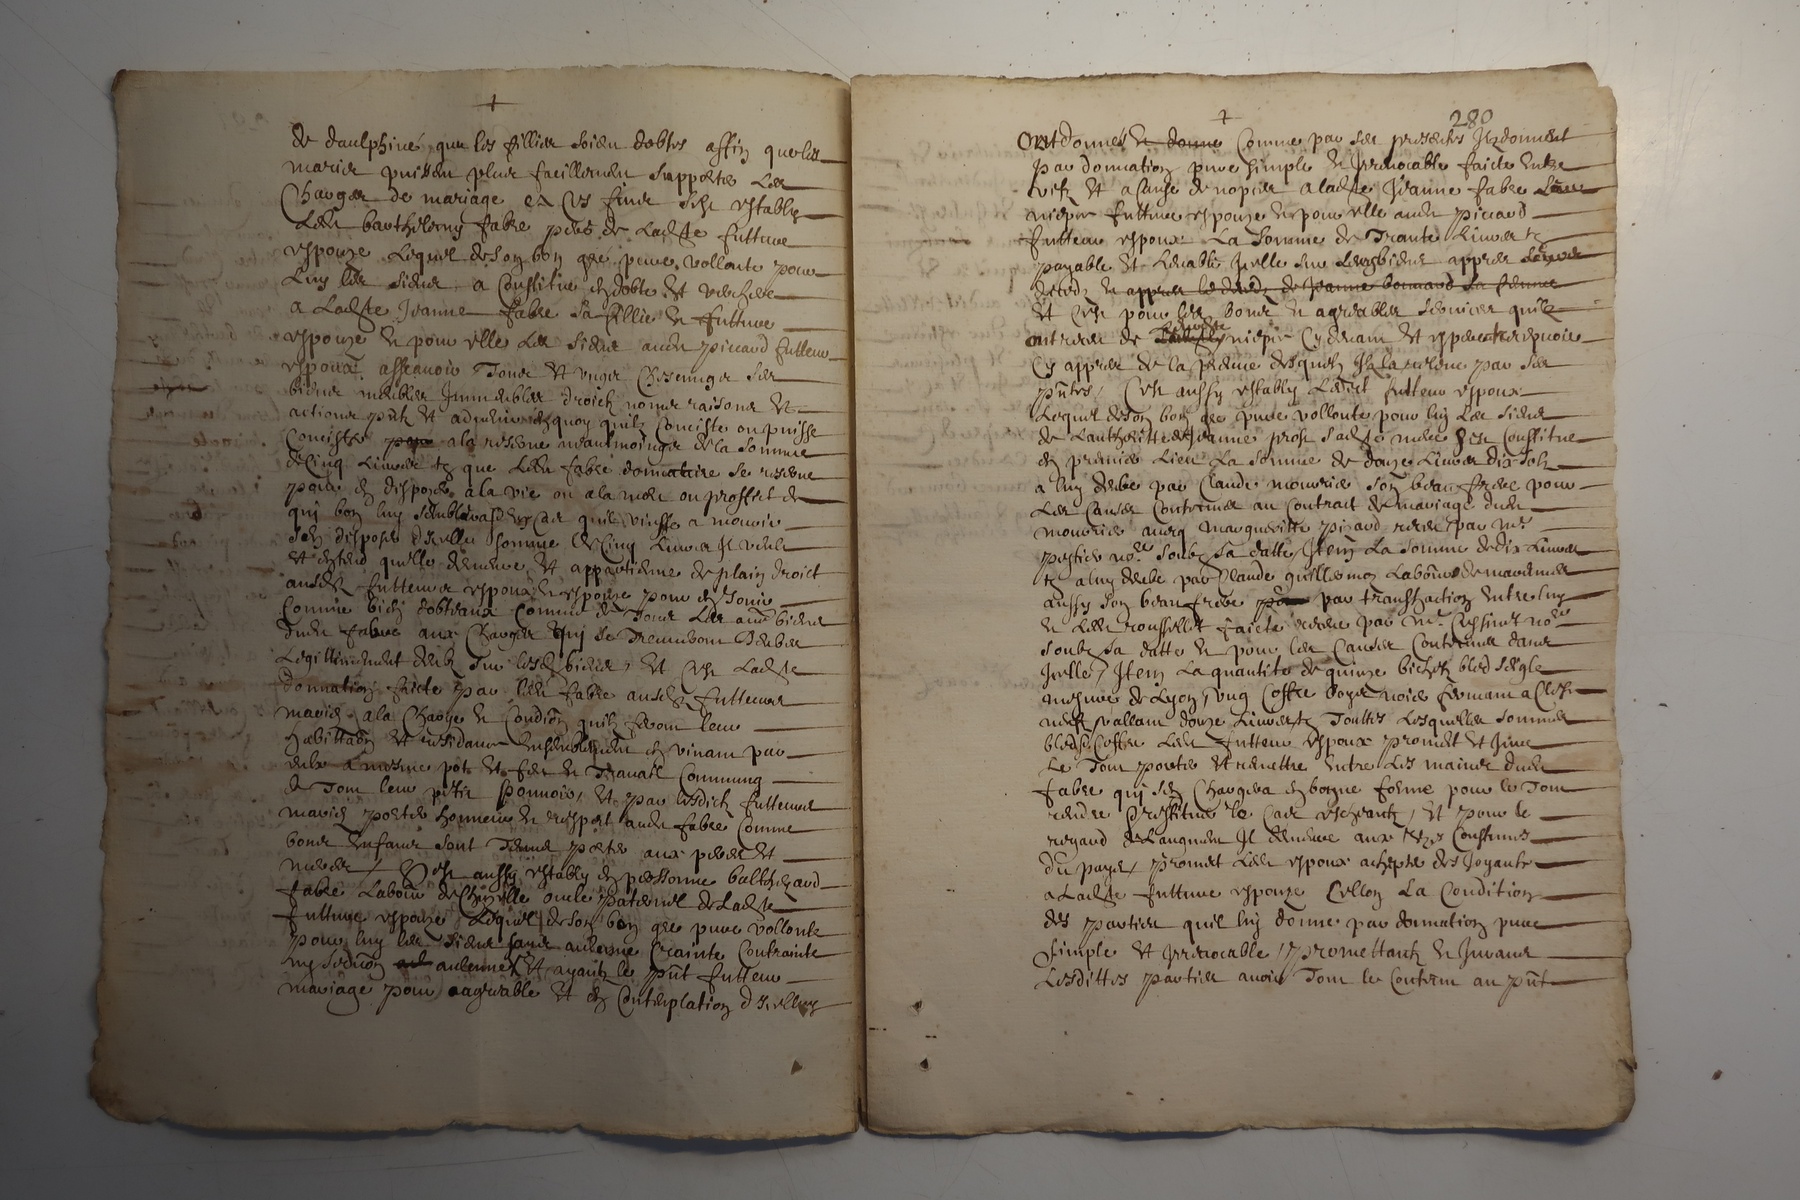 de daulphiné que les fillies soien dobtes affin que les
maries puissen plus facillemen supporter les
Charges de mariage ea ces fins s'est establly
Ledt barthelemy fabre pere de Ladte future
espouze Lequel de son bon gré pure vollonte pour
Luy les siens a Constitue en dobte et verchere
a Ladte Jeanne fabre sa fillie et future
espouze et pour elle les siens audt piccard futteur
espoux assavoir Tous et ungs Chescungs ses
biens meubles Immeubles droictz noms raisons et
actions pntz et advenir en quoy quilz Conciste ou puisse
Conciste a la reserve neantmoingz de la somme
de Cinq Livres tz que Ledt fabre donnataire se reserve
pour en disposer a la vie ou a la mort ou proffict de
qui bon luy semblera et en Cas quil vinsse a mourir
sans disposer d'icelle somme de Cinq Livres Il veult
et entend quelle demeure et appartienne de plain droict
ausdz futteurs espoux et espouze pour en Jouir
Comme bien dobteaux Comme de Tous Les autres biens
dudt fabre aux Charges quj se Treuveront Deubes
Legittimement deubz sur lesdz biens, et est Ladte
donnation faicte par ledt fabre ausdz futteurs
maries a la Charge et Condion quilz feront leur
habittaon et residance ensemblement en vivant par
entre a mesme pot et feu et Travail Commung
de Tout leur petit pouvoir, et par lesdictz futteurs
maries porter honneur et respect audt fabre Comme
bons enfans sont Tenus porter aux peres et
meres, Et est aussy establly en personne balthezard
fabre Laboureur de Chezelle oncle paternel de Ladte
future espouze Lequel de son bon gre pure vollonte
pour luy les siens sans aulcune Crainte Contrainte
ny seduon aulcunes et ayant le pnt futteur
mariage pour aagreable et en Contenplation d'icelluy
280
Ont donnes Comme par ses presentes Ilz donnent
par donnation pure simple et Irrevocable faicte entre
vifz et a Cause de nopces a ladte Jeanne fabre
niepce future espouze et pour elle audt piccard
futteur espoux La somme de Trante Livres tz
payable et Levable Icelle sur Leurs biens appres
deced et appres le deced de Jeanne bonnard sa femme
et Cest pour les bons et agreables services quilz
ont receu de niepce Cy devant et espere recepvoir
Cy appres de la preuve desquelz Ilz la relleve par ses
pntes, Cest aussy establly Ledict futteur espoux
Lequel de son bon gre pure vollonte pour luy Les siens
de Lauthoritte de Jeanne prost sadte mere sest Constitue
en premier Lieu La somme de douze Livres dix solz
a luy deube par Claude mounier son beau frere pour
Les Causes Contenues au Contract de mariage dudt
mounier avecq Margueritte picard receu par Me
pressier nore soubz sa datte, Item La somme de dix Livres
tz a luy deube par Claude guillermon Laboureur de
aussy son beau frere par transaction entre luy
et Ledt roussillet faicte receue par Me Cressinet nore
soubz sa datte et pour les Causes Contenues dans
Icelle, Item La quantite de quinze bichetz bled seigle
mesure de Lyon, ung Coffre boys noier fermant a Clefz
neufz vallant douze Livres tz Touttes Lesquelles sommes
bled Coffre Ledt futteur espoux promet et Jure
Le Tout porter et remettre entre les mains dudt
fabre qui s'en Chargera en bonne forme pour le Tout
rendre restitue le Cas escheant, et pour le
regard de Laugment Il demeure aux uz et Coustumes
du pays, promet Ledt espoux achepter des Joyaux
a Ladte future espouze sellon La Condition
des parties quil luy donne par donnation pure
simple et Irrevocable, promettantz et Jurans
Lesdittes parties avoir Tout le Contenu au pnt